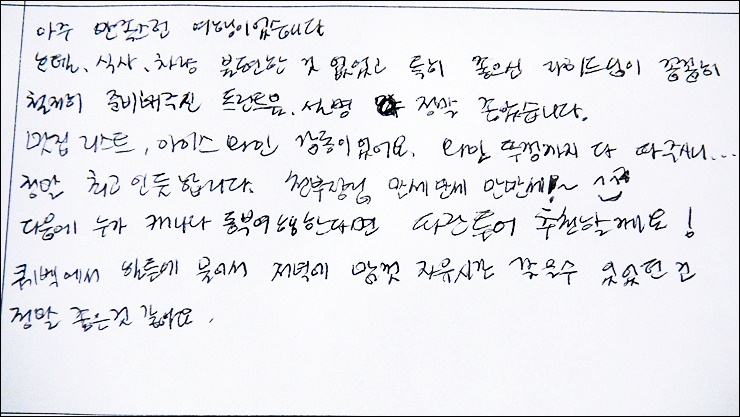 아주 만족스런 여행이었습니다
호텔, 식사, 차량 불편한 것 없었고 특히 좋으신 가이드님이 꼼꼼히
철저히 준비해주신 프린트물, 설명 정말 좋았습니다.
맛집 리스트, 아이스 와인 감동이었어요. 와인 뚜껑까지 다 따주시니...
정말 최고인듯 합니다. 천부장님 만세 만세 만만세!~
다음에 누가 캐나다 동부여행한다면 파란투어 추천할께요!
퀘벡에서 시내에 묵어서 저녁에 맘껏 자유시간 갖을수 있었던 건
정말 좋은것 같아요.